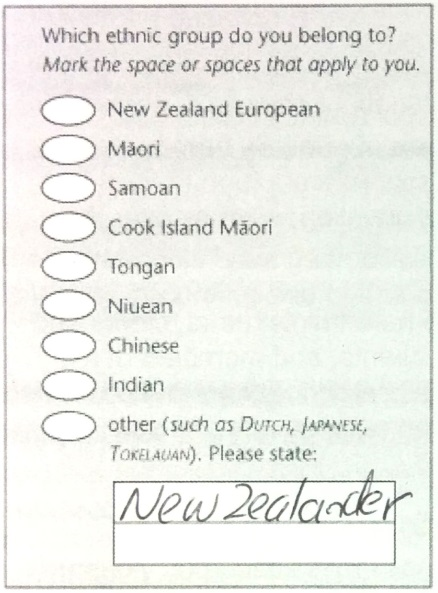 Which ethnic group do you belong to?
Mark the space or spaces that apply to you.
New Zealand European
Māori
Samoan
Cook Island Māori
Tongan
Niuean
Chinese
Indian
other (such as DUTCH, JAPANESE,
TOKELAUAN). Please state:
New Zealander